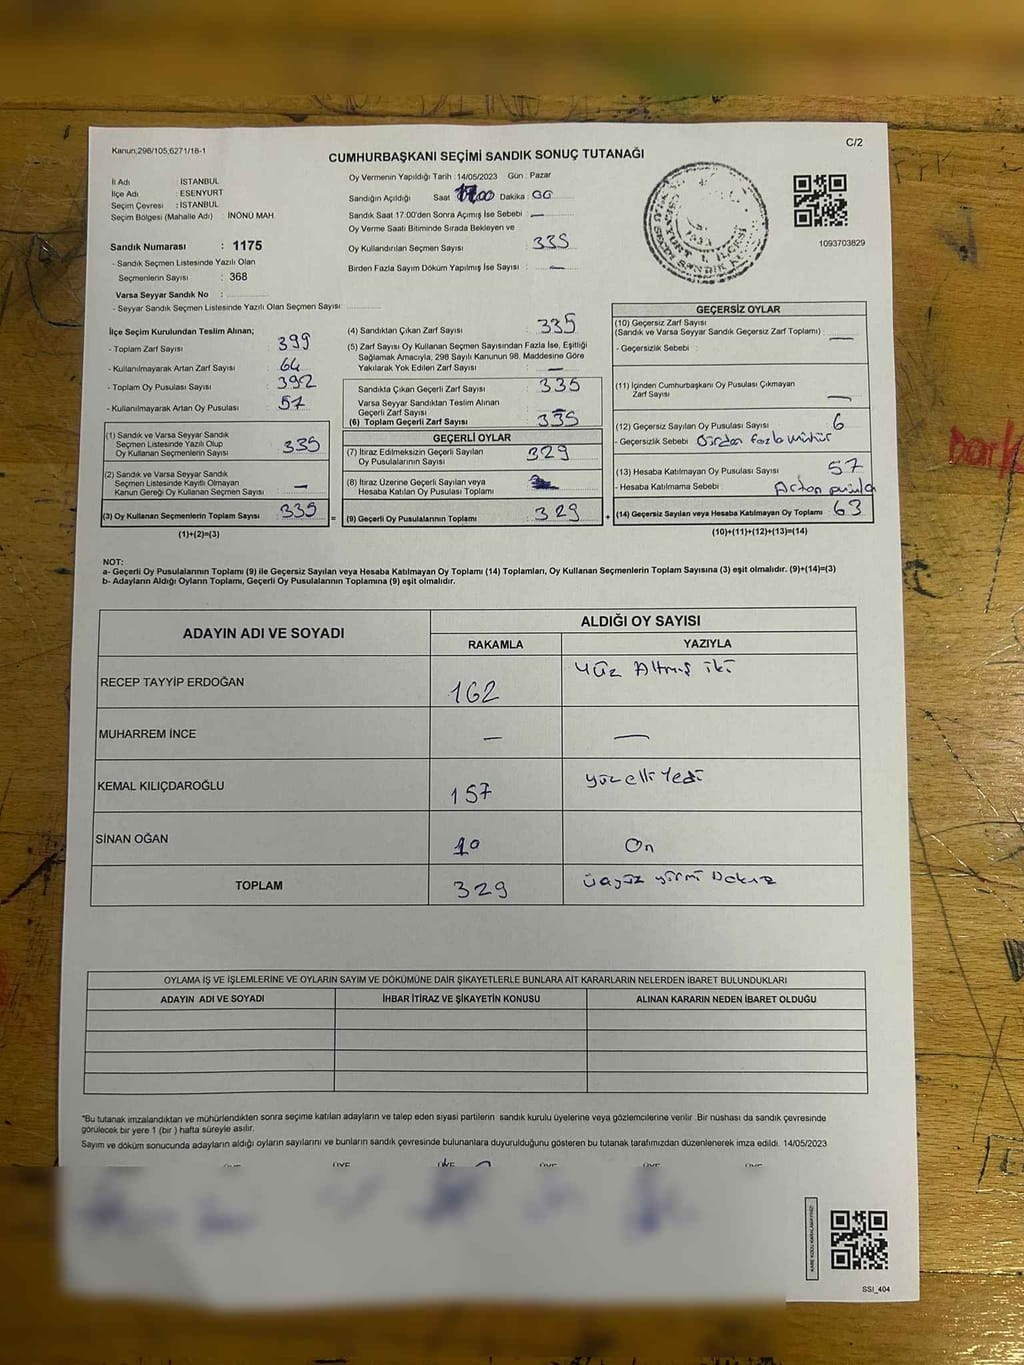 Kanun;298/105;6271/18-1
C/2
CUMHURBAŞKANI SEÇİMİ SANDIK SONUÇ TUTANAĞI
İl Adı : İSTANBUL
İlçe Adı : ESENYURT
Seçim Çevresi : İSTANBUL
Seçim Bölgesi (Mahalle Adı) İNÖNÜ MAH.
Sandık Numarası : 1175
- Sandık Seçmen Listesinde Yazılı Olan
Seçmenlerin Sayısı : 368
Varsa Seyyar Sandık No :
- Seyyar Sandık Seçmen Listesinde Yazılı Olan Seçmen Sayısı:
Oy Vermenin Yapıldığı Tarih : 14/05/2023 Gün : Pazar
Sandığın Açıldığı Saat Dakika :
Sandık Saat 17.00'den Sonra Açımış İse Sebebi : —
Oy Verme Saati Bitiminde Sırada Bekleyen ve
Oy Kullandırılan Seçmen Sayısı : 335
Birden Fazla Sayım Döküm Yapılmış İse Sayısı : —
1093703829
İlçe Seçim Kurulundan Teslim Alınan;
- Toplam Zarf Sayısı : 399
- Kullanılmayarak Artan Zarf Sayısı : 64
- Toplam Oy Pusulası Sayısı : 392
- Kullanılmayarak Artan Oy Pusulası : 57
(1) Sandık ve Varsa Seyyar Sandık
Seçmen Listesinde Yazılı Olup
Oy Kullanan Seçmenlerin Sayısı : 335
(2) Sandık ve Varsa Seyyar Sandık
Seçmen Listesinde Kayıtlı Olmayan
Kanun Gereği Oy Kullanan Seçmen Sayısı : —
(3) Oy Kullanan Seçmenlerin Toplam Sayısı : 335 =
(1)+(2)=(3)
(4) Sandıktan Çıkan Zarf Sayısı : 335
(5) Zarf Sayısı Oy Kullanan Seçmen Sayısından Fazla İse, Eşitliği
Sağlamak Amacıyla, 298 Sayılı Kanunun 98. Maddesine Göre
Yakılarak Yok Edilen Zarf Sayısı : —
Sandıkta Çıkan Geçerli Zarf Sayısı : 335
Varsa Seyyar Sandıktan Teslim Alınan
Geçerli Zarf Sayısı :
(6) Toplam Geçerli Zarf Sayısı : 335
GEÇERLİ OYLAR
(7) İtiraz Edilmeksizin Geçerli Sayılan
Oy Pusulalarının Sayısı : 329
(8) İtiraz Üzerine Geçerli Sayılan veya
Hesaba Katılan Oy Pusulası Toplamı :
(9) Geçerli Oy Pusulalarının Toplamı : 329 +
GEÇERSİZ OYLAR
(10) Geçersiz Zarf Sayısı
(Sandık ve Varsa Seyyar Sandık Geçersiz Zarf Toplamı) : —
- Geçersizlik Sebebi :
(11) İçinden Cumhurbaşkanı Oy Pusulası Çıkmayan
Zarf Sayısı : —
(12) Geçersiz Sayılan Oy Pusulası Sayısı : 6
- Geçersizlik Sebebi : Birden fazla mühür
(13) Hesaba Katılmayan Oy Pusulası Sayısı : 57
- Hesaba Katılmama Sebebi : Artan pusula
(14) Geçersiz Sayılan veya Hesaba Katılmayan Oy Toplamı : 63
(10)+(11)+(12)+(13)=(14)
NOT:
a- Geçerli Oy Pusulalarının Toplamı (9) ile Geçersiz Sayılan veya Hesaba Katılmayan Oy Toplamı (14) Toplamları, Oy Kullanan Seçmenlerin Toplam Sayısına (3) eşit olmalıdır. (9)+(14)=(3)
b- Adayların Aldığı Oyların Toplamı, Geçerli Oy Pusulalarının Toplamına (9) eşit olmalıdır.
ADAYIN ADI VE SOYADI ALDIĞI OY SAYISI
RAKAMLA YAZIYLA
RECEP TAYYİP ERDOĞAN 162 Yüz Altmış iki
MUHARREM İNCE — —
KEMAL KILIÇDAROĞLU 157 yüz elli Yedi
SİNAN OĞAN 10 On
TOPLAM 329 üçyüz yirmi Dokuz
OYLAMA İŞ VE İŞLEMLERİNE VE OYLARIN SAYIM VE DÖKÜMÜNE DAİR ŞİKAYETLERLE BUNLARA AİT KARARLARIN NELERDEN İBARET BULUNDUKLARI
ADAYIN ADI VE SOYADI İHBAR İTİRAZ VE ŞİKAYETİN KONUSU ALINAN KARARIN NEDEN İBARET OLDUĞU
"Bu tutanak imzalandıktan ve mühürlendikten sonra seçime katılan adayların ve talep eden siyasi partilerin sandık kurulu üyelerine veya gözlemcilerine verilir. Bir nüshası da sandık çevresinde
görülecek bir yere 1 (bir ) hafta süreyle asılır.
Sayım ve döküm sonucunda adayların aldığı oyların sayılarını ve bunların sandık çevresinde bulunanlara duyurulduğunu gösteren bu tutanak tarafımızdan düzenlenerek imza edildi. 14/05/2023
SSI_404